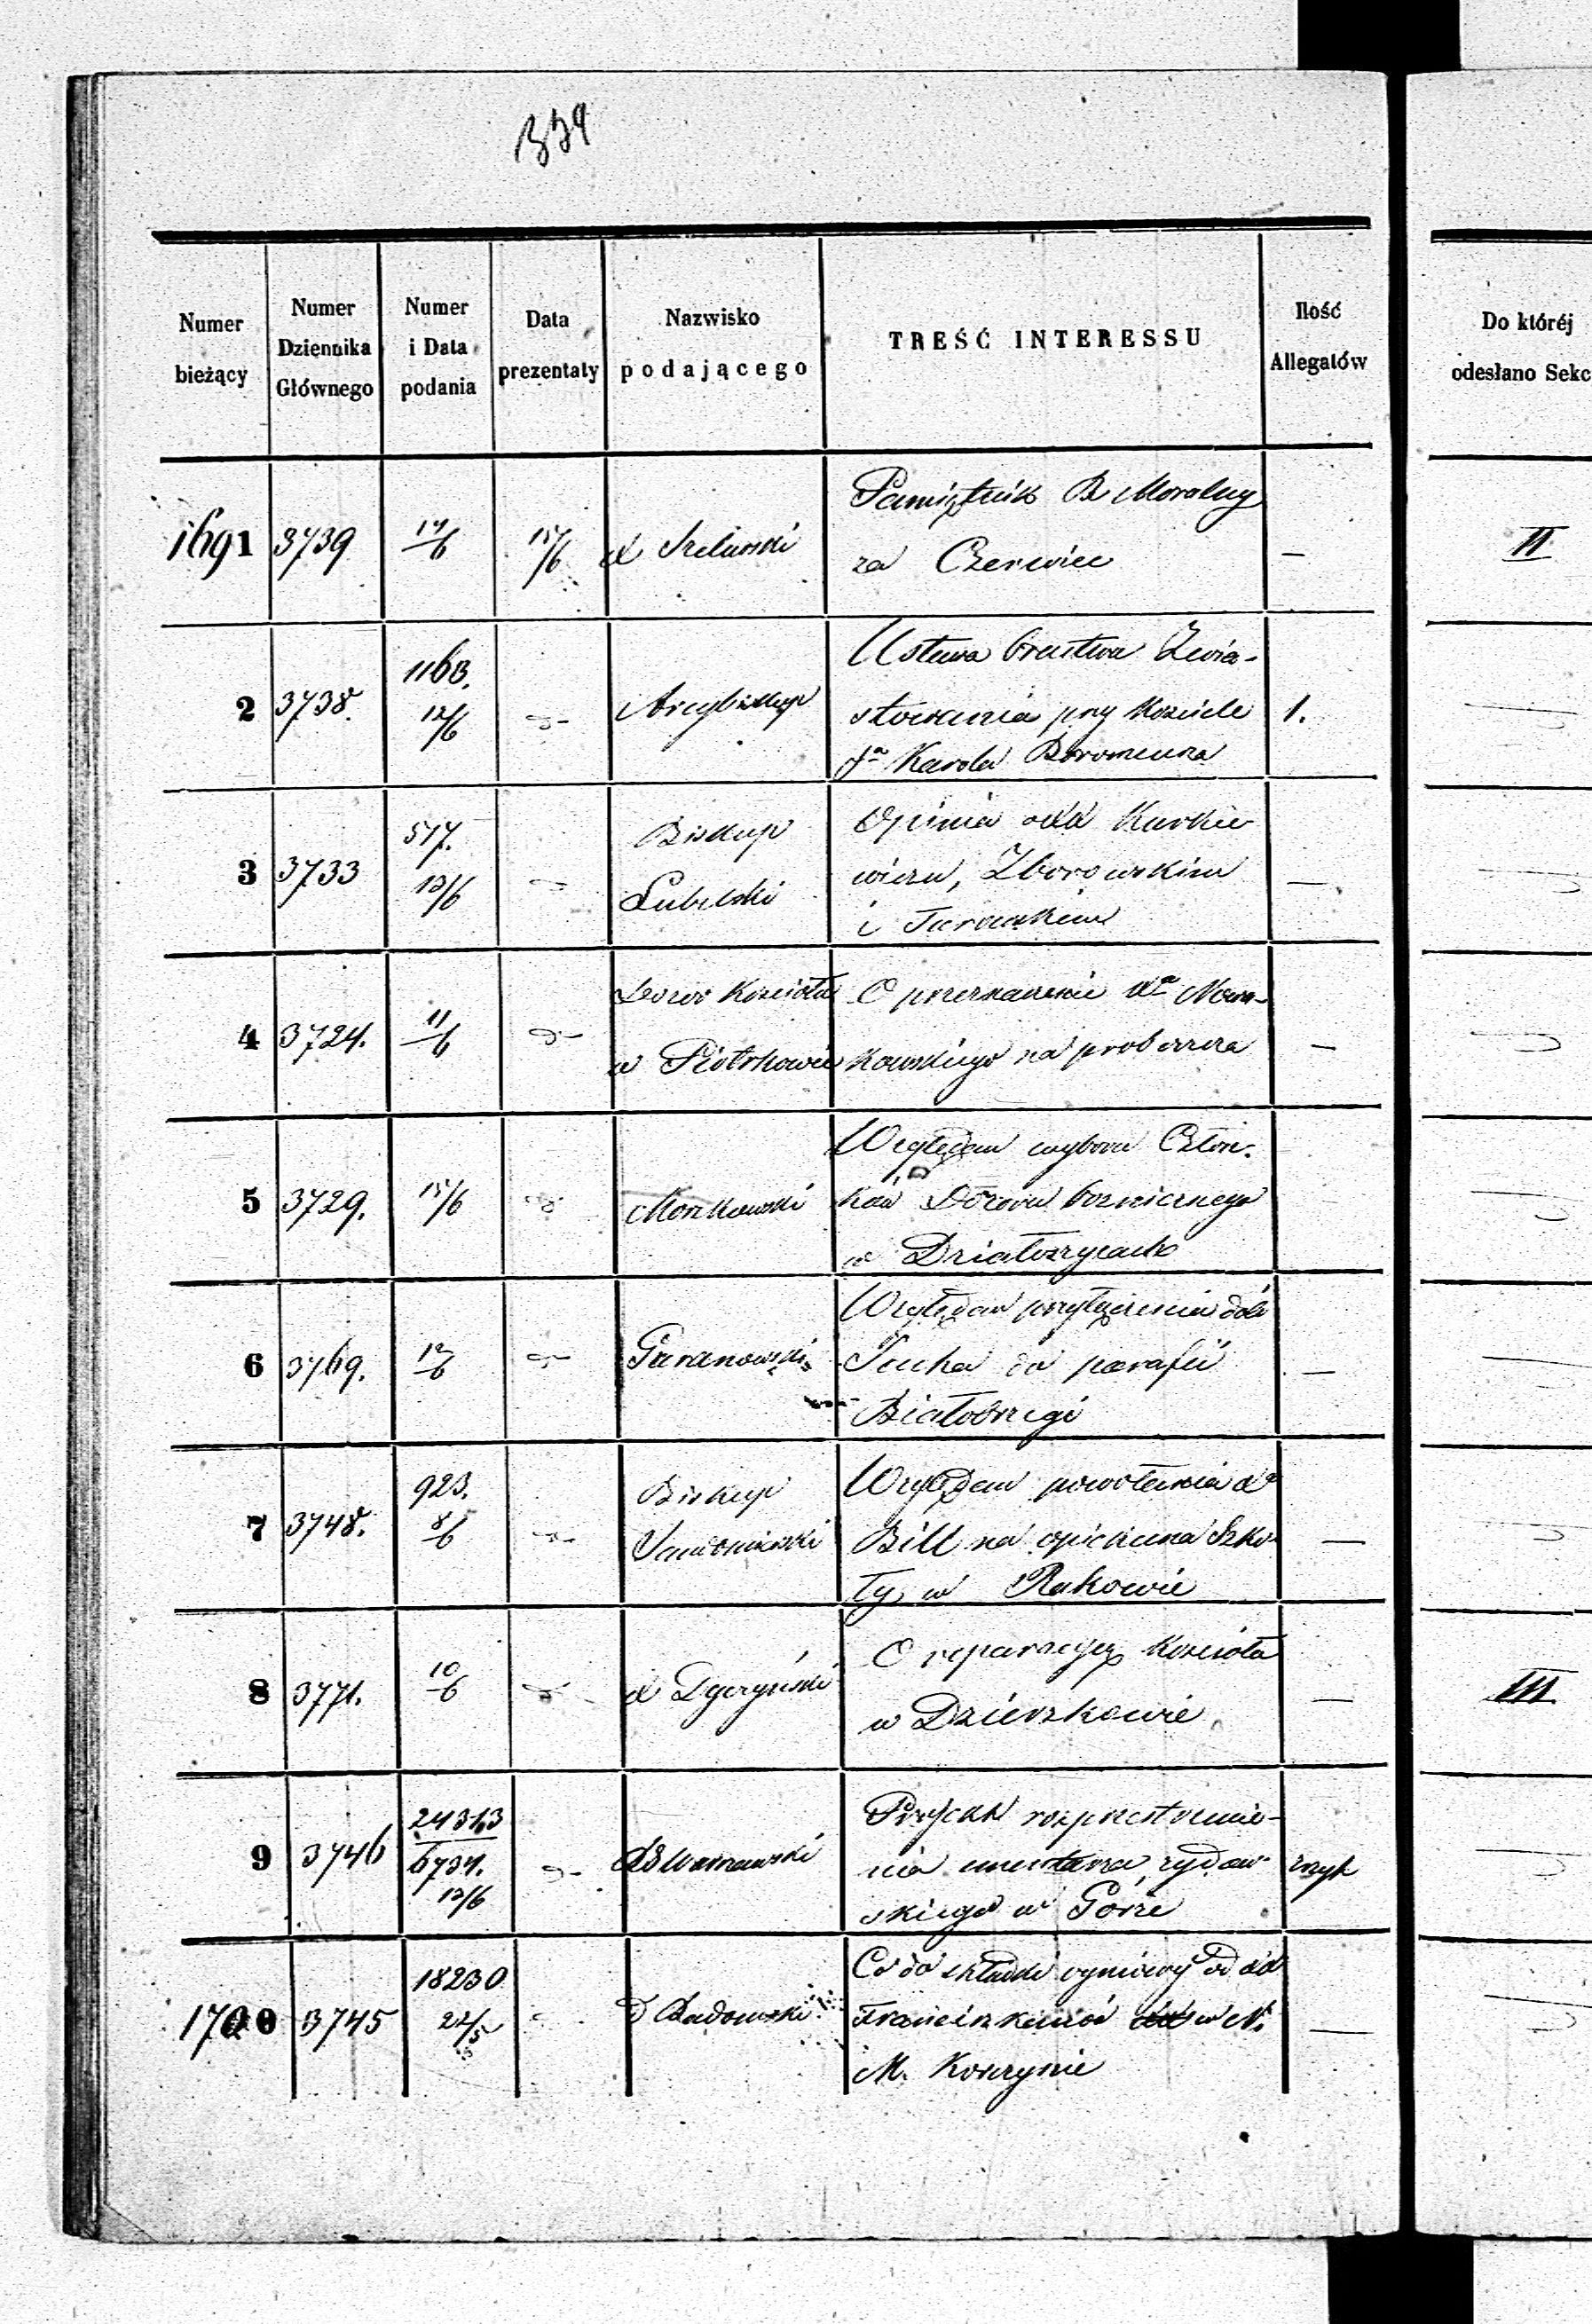 339
Numer bieżący
Numer Dziennika Głównego
Numer i Data podania
Data prezentaty
Nazwisko podającego
TREŚĆ INTERESSU
Ilość Allegatów
Do któréj odesłano Sekc
1691 3739 14/6 15/6 X Szelewski Pamiętnik R. Moralny —
za Czerwiec
II
2 3738. 1163. 12/6 -"- Arcybiskup Ustawa bractwa Zwia-
stowania przy Kościele 1.
Sgo Karola Boromeusza
3 3733 517. 13/6 -"- Biskup Lubelski Opinia o XX Kurkie-
wiczu, Zborowskim —
i Tarawskim
4 3724. 11/6 -"- Dozór Kościoła w Piotrkowie O przeznaczenie Xa Nowa-
kowskiego na proboszcza —
5 3729. 15/6 -"- Morzkowski Względem wyboru Człon-
ków Dozoru bożniczego
w Działoszycach
6 3769. 12/6 -"- Garanowski Względem przyłączenia dóbr
Sucha do parafii —
Białobrzegi
7 3748. 923. 8/6 -"- Biskup Sandomirski Względem powołania Xa
Bill na opiekuna Szko- —
ły w Rakowie
8 3771. 10/6 -"- X Dyczyński O reparacyę Kościoła
w Dzierzkowie —
III
9 3746 24313/6734. 12/6 -"- RG Warszawski Projekt rozprzestrzenie-
nia cmentarza żydow- zszyt
skiego w Górze
1700 3745 18230 22/5 D Badowski Co do składki ogniowéj od XX
Franciszkanów w N.
M. Korczynie —